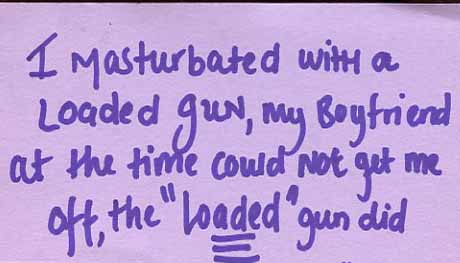 I Masturbated with a
Loaded gun, my Boyfriend
at the time could Not get me
off, the "Loaded" gun did